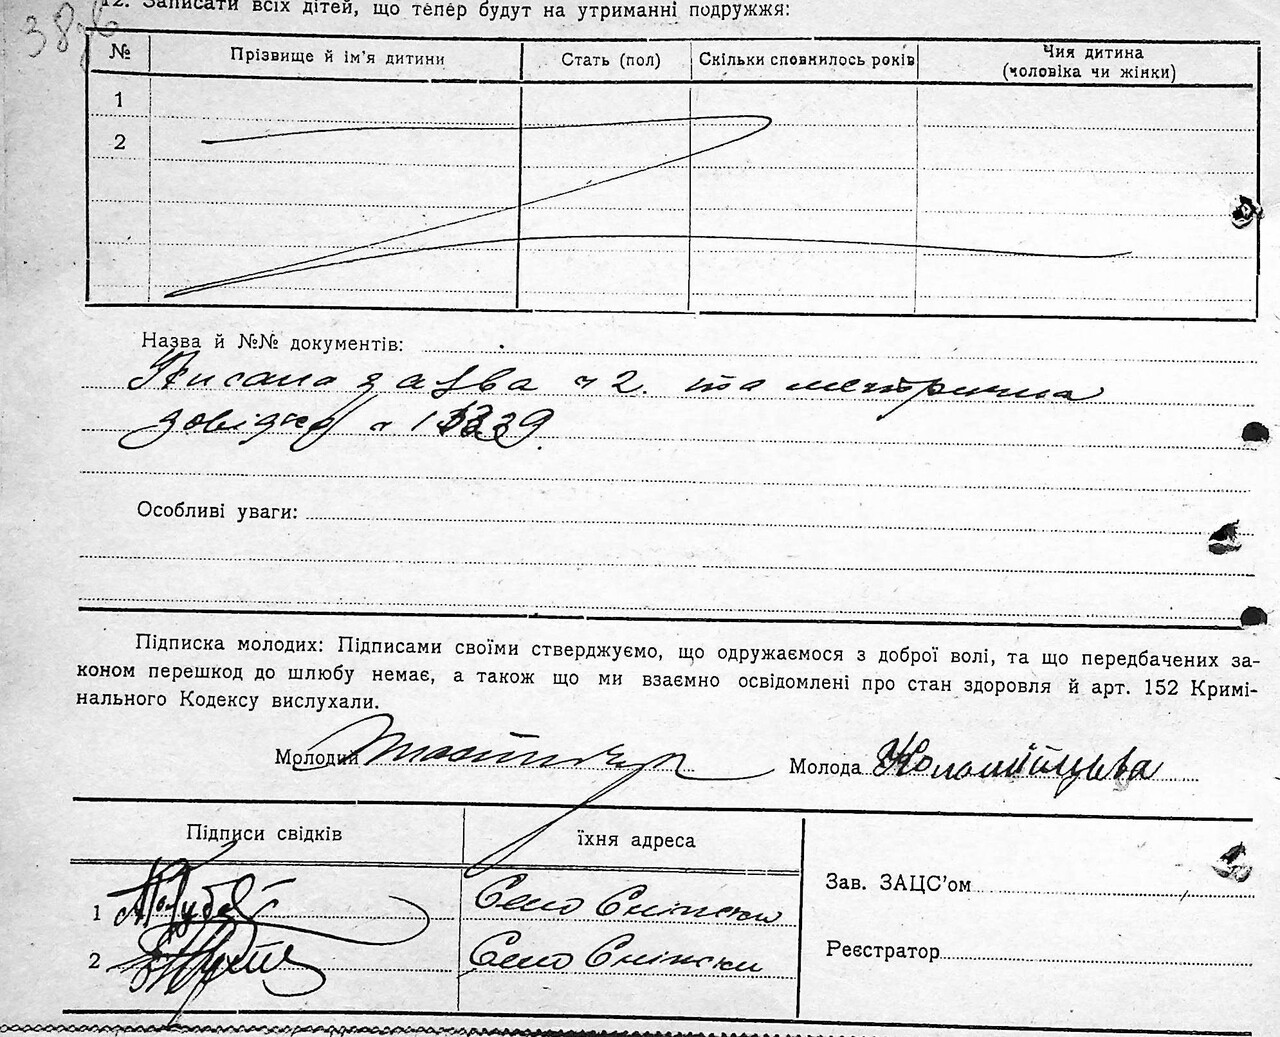 12. Записати всіх дітей, що тепер будут на утриманні подружжя:
№ Прізвище й ім'я дитини Стать (пол) Скільки сповнилось років Чия дитина (чоловіка чи жінки)
1
2
Назва й №№ документів:
Писана заява ч 2. та метрична
довідка ч
Особливі уваги:
Підписка молодих: Підписами своїми стверджуємо, що одружаємося з доброї волі, та що передбачених за-
коном перешкод до шлюбу немає, а також що ми взаємно освідомлені про стан здоровля й арт. 152 Кримі-
нального Кодексу вислухали.
Молодий Молода Коломійцева
Підписи свідків їхня адреса
1 Село Сніжки
Зав. ЗАЦС'ом
2 Село Сніжки
Реєстратор